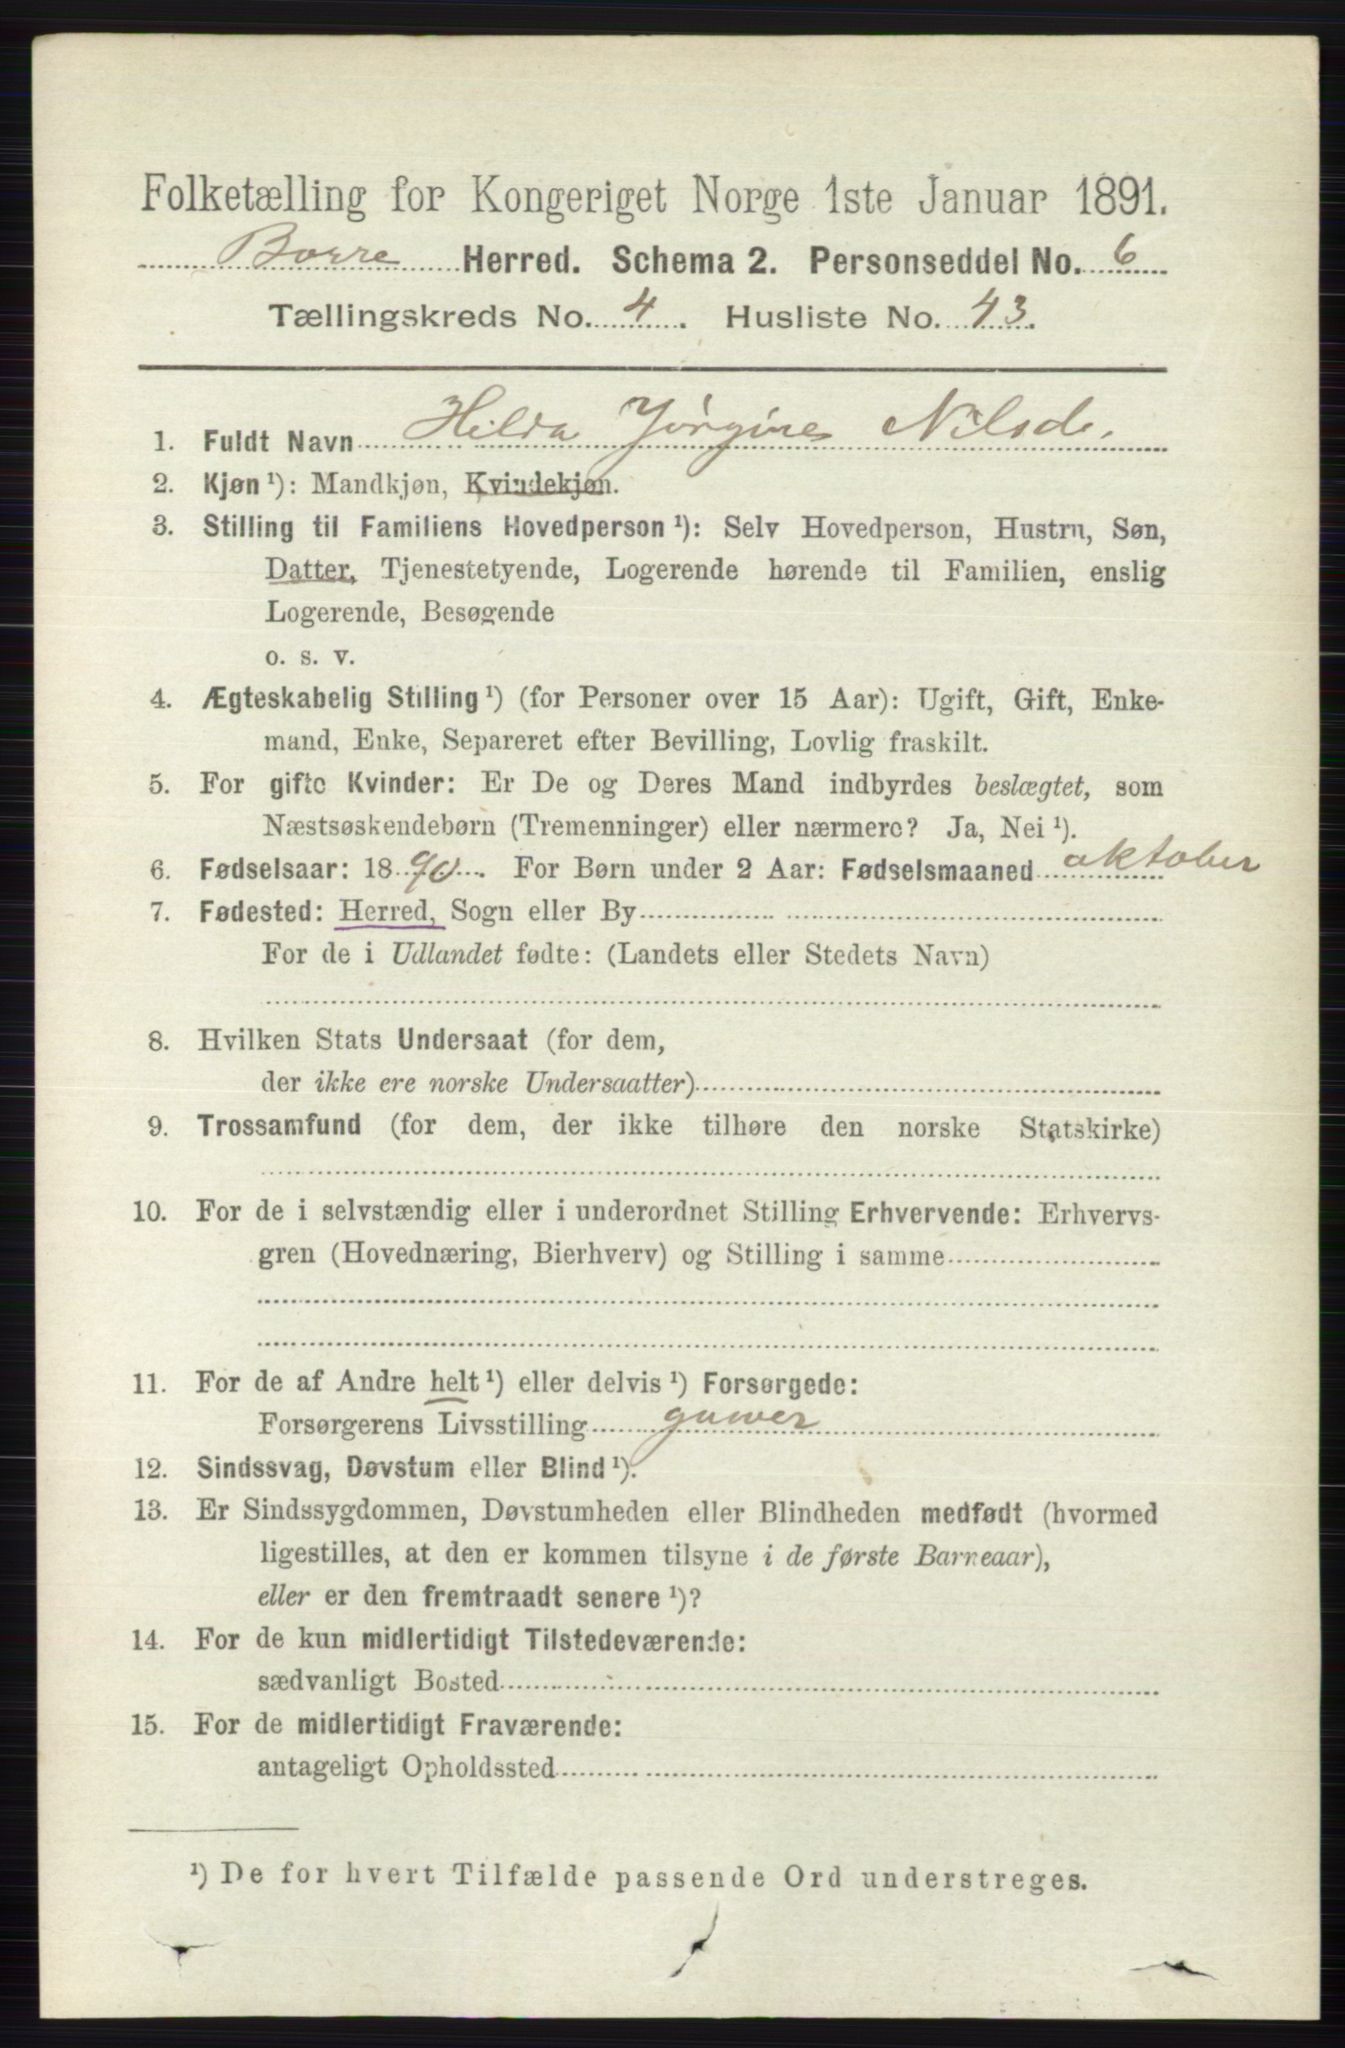 Folketælling for Kongeriget Norge 1ste Januar 1891.
Borre Herred. Schema 2. Personseddel No. 6
Tællingskreds No. 4. Husliste No. 43.
1. Fuldt Navn Hilda Jørgine Nilsd.
2. Kjøn ¹): Mandkjøn, Kvindekjøn.
3. Stilling til Familiens Hovedperson ¹): Selv Hovedperson, Hustru, Søn,
Datter, Tjenestetyende, Logerende hørende til Familien, enslig
Logerende, Besøgende
o. s. v.
4. Ægteskabelig Stilling ¹) (for Personer over 15 Aar): Ugift, Gift, Enke-
mand, Enke, Separeret efter Bevilling, Lovlig fraskilt.
5. For gifte Kvinder: Er De og Deres Mand indbyrdes beslægtet, som
Næstsøskendebørn (Tremenninger) eller nærmere? Ja, Nei ¹).
6. Fødselsaar: 1890. For Børn under 2 Aar: Fødselsmaaned oktober
7. Fødested: Herred, Sogn eller By
For de i Udlandet fødte: (Landets eller Stedets Navn)
8. Hvilken Stats Undersaat (for dem,
der ikke ere norske Undersaatter)
9. Trossamfund (for dem, der ikke tilhøre den norske Statskirke)
10. For de i selvstændig eller i underordnet Stilling Erhvervende: Erhvervs-
gren (Hovednæring, Bierhverv) og Stilling i samme
11. For de af Andre helt ¹) eller delvis ¹) Forsørgede:
Forsørgerens Livsstilling
12. Sindssvag, Døvstum eller Blind ¹).
13. Er Sindssygdommen, Døvstumheden eller Blindheden medfødt (hvormed
ligestilles, at den er kommen tilsyne i de første Barneaar),
eller er den fremtraadt senere ¹)?
14. For de kun midlertidigt Tilstedeværende:
sædvanligt Bosted
15. For de midlertidigt Fraværende:
antageligt Opholdssted
¹) De for hvert Tilfælde passende Ord understreges.